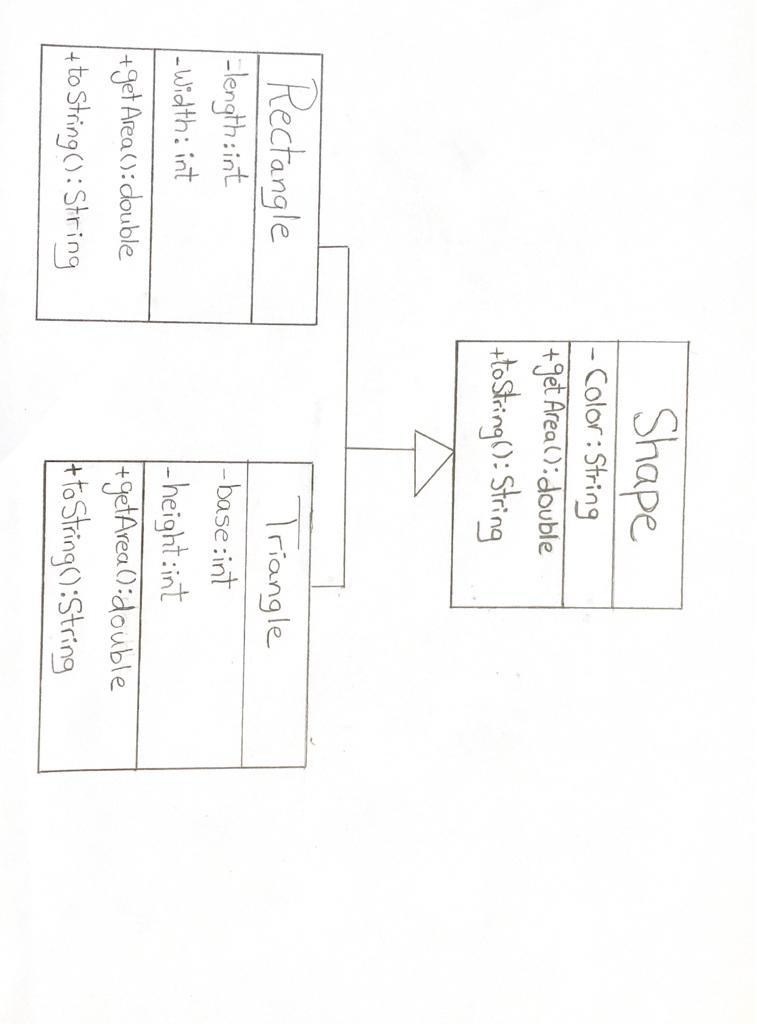 Shape
- Color: String
+getArea(): double
+toString(): String
Rectangle
-length: int
-width: int
+getArea(): double
+toString(): String
Triangle
-base: int
-height: int
+getArea(): double
+toString(): String